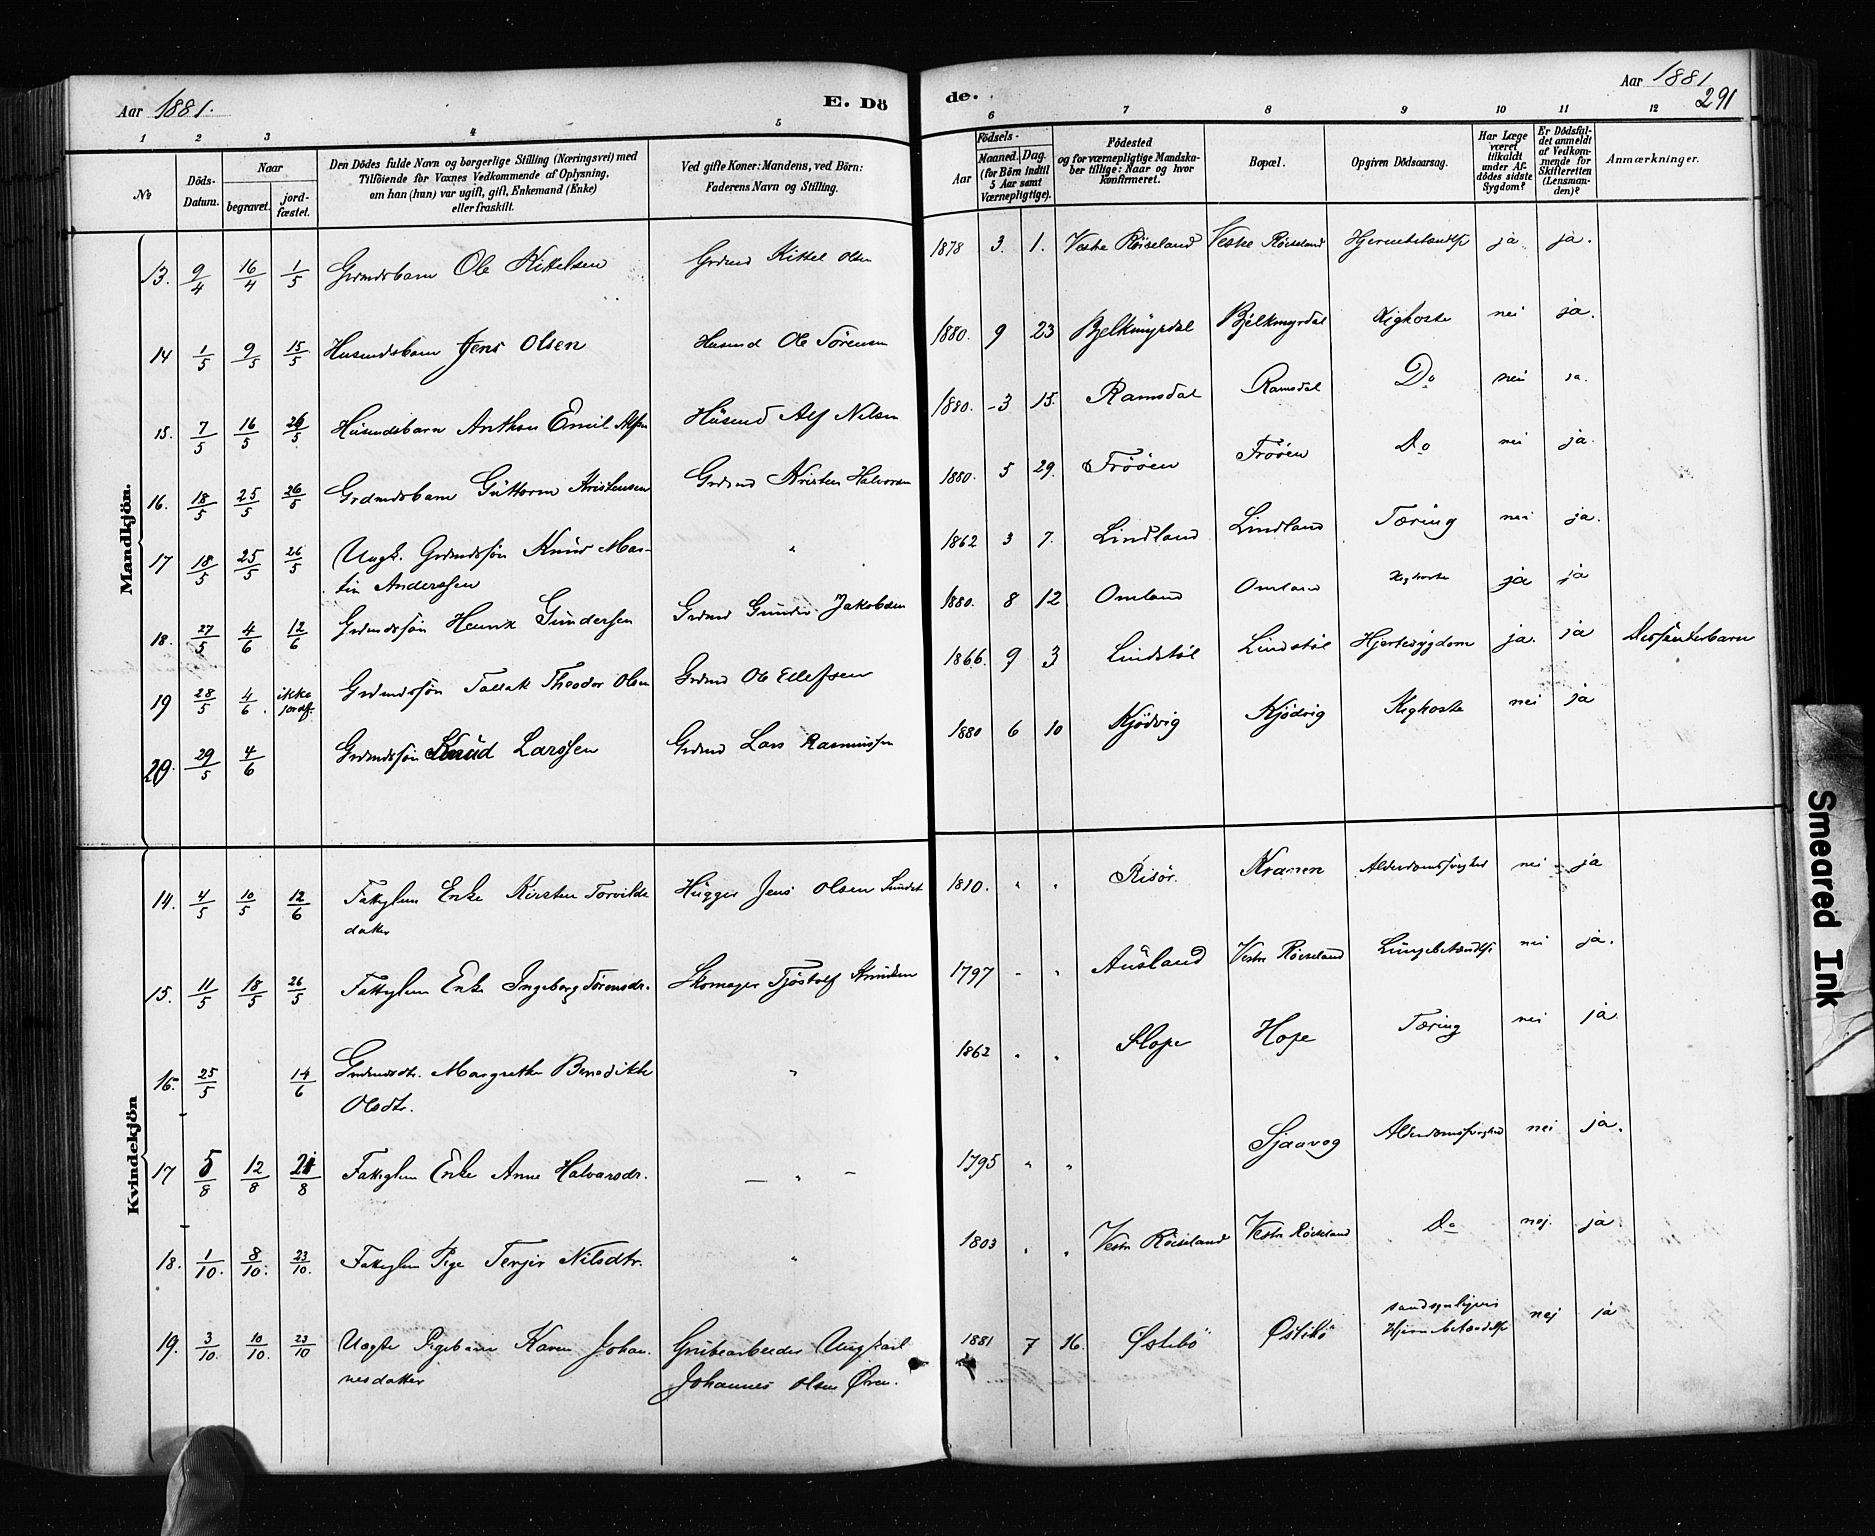 Aar 1881.
E. Dö
de.
Aar 1881
291
1 2 3 4 5 6 7 8 9 10 11 12
No
Döds-Datum.
Naar
begravet.
jord-fæstet.
Den Dödes fulde Navn og borgerlige Stilling (Næringsvei) med
Tilföiende for Voxnes Vedkommende af Oplysning,
om han (hun) var ugift, gift, Enkemand (Enke)
eller fraskilt.
Ved gifte Koner: Mandens, ved Börn:
Faderens Navn og Stilling.
Födsels-
Aar
Maaned. Dag.
(for Börn indtil
5 Aar samt
Værnepligtige).
Födested
og for værnepligtige Mandska-
ber tillige: Naar og hvor
konfirmeret.
Bopæl.
Opgiven Dödsaarsag.
Har Læge
været
tilkaldt
under Af-
dödes sidste
Sygdom?
Er Dödsful-
det anmeldt
af Vedkom-
mende for
Skifteretten
(Lensman-
den)?
Anmærkninger.
Mandkjön.
13. 9/4 16/4 1/5 Grdmdsbarn Ole Kittelsen Grdmd Kittel Olsen 1878 3. 1. Vestre Röiseland Vestre Röiseland Hjernebetændlse ja ja.
14 1/5 9/5 15/5 Husmdsbarn Jens Olsen Husmd Ole Sörensen 1880. 9 23 Bjelkmyrdal Bjelkmyrdal Kighoste nei ja.
15. 7/5 16/5 26/5 Husmdsbarn Anthon Emil Alfsen Husmd Alf Nilsen 1880. 3 15. Ramsdal Ramsdal Do nei ja.
16. 18/5 25/5 26/5 Grdmdsbarn Guttorm Kristensen Grdmd Kristen Halvorsen 1880. 5 29. Frööen Frööen Do nei ja.
17 18/5 25/5 26/5 Ungk. Grdmdssön Knud Mar- " 1862 3 7. Lindland Lindland Tæring nei ja.
tin Anderssen
18. 27/5 4/6 12/6 Grdmdssön Henrik Gundersen Grdmd Gunder Jakobsen 1880. 8 12 Omland Omland Kighoste ja ja
19 28/5 4/6. ikke jordf. Grdmdssön Tallak Theodor Olsen Grdmd Ole Ellefsen 1866. 9 3 Lindstöl Lindstöl Hjertesygdom ja. ja Dissenterbarn
20. 29/5 4/6 Grdmdssön Knud Larssen Grdmd Lars Rasmussen 1880 6 10 Kjödvig Kjödvig Kighoste nei ja
Kvindekjön
14. 4/5 10/5 12/6 Fattiglem Enke Kirsten Torvilds- Hugger Jens Olsen Sundet 1810. " " Risör. Kranen Alderdomssvaghed nei ja
datter
15. 11/5 18/5 26/5 Fattiglem Enke Ingeborg Törensdr. Skomager Tjöstolf 1797 " " Ausland Vestre Röiseland Lungebetændlse nei ja.
16. 25/5 14/6 Grdmdsdtr. Margrethe Benedikte " 1862 " " Hope Hope Tæring nei ja.
Olsdtr.
17 5/8 12/8 21/8 Fattiglem Enke Anne Halvorsdr. — " — 1795 " " Sjaavog Alderdomssvaghed nei ja.
18. 1/10. 8/10. 23/10. Fattiglem Pige Terjer Nilsdtr. " 1803 " " Vestre Röiseland Vestre Röiseland Do nej. ja.
19. 3/10. 10/10. 23/10 Uægte Pigebarn Karen Johan- Grubearbeider Ungkarl 1881 7 16. Östebö Östebö sandsynligvis Hjernebetændlse nej ja
nesdatter Johannes Olsen Øren.
Smeared Ink